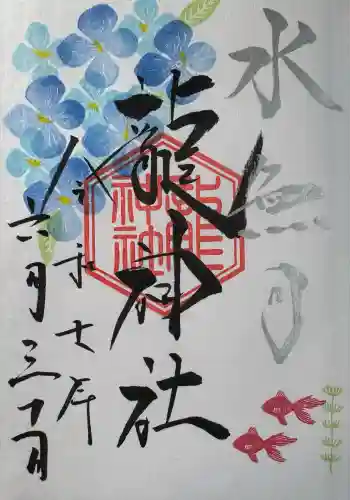 水無月
龍神社
令和七年
六月三十日
龍神社